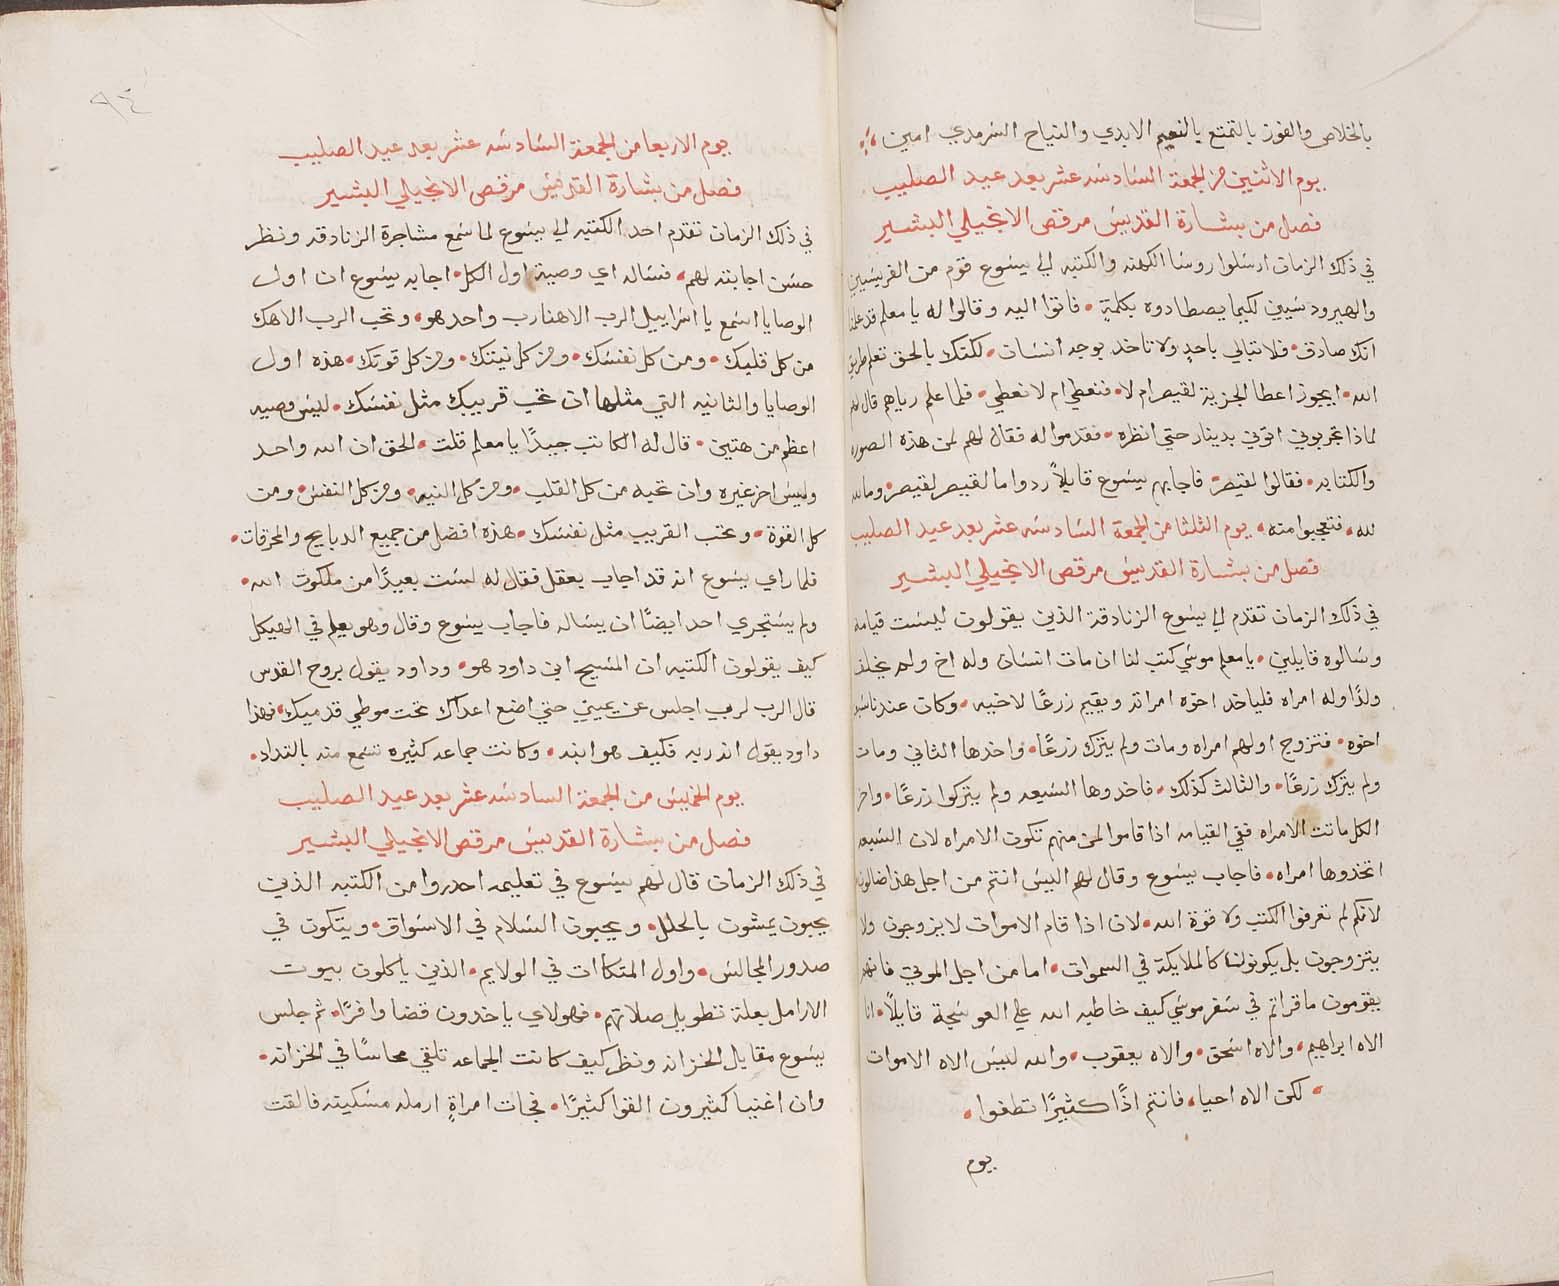 بالخلاص والفوز بالتمتع بالنعيم الابدي والنياح السرمدي امين
يوم الاثنين من الجمعة السادسه عشر بعد عيد الصليب
فصل من بشارة القديس مرقص الانجيلي البشير
في ذلك الزمان ارسلوا روسا الكهنه والكتبه الي يسوع قوم من الفريسيين
والهيرودسيين لكيما يصطادوه بكلمة • فاتوا اليه وقالوا له يا معلم قد علمنا
انك صادق • فلا تبالي باحدٍ ولا تاخد بوجه انسان • لكنك بالحق تعلم طريق
الله • ايجوز اعطا الجزية لقيصر ام لا • فنعطي ام لا نعطي • فلما علم رياهم قال لهم
لماذا تجربوني اتوني بدينار حتي انظره • فقدموا له فقال لهم لمن هذه الصوره
والكتابه • فقالوا لقيصر • فاجابهم يسوع قايلاً ردوا ما لقيصر لقيصر • وما لله
لله • فتعجبوا منه • يوم الثلثا من الجمعة السادسه عشر بعد عيد الصليب
فصل من بشارة القديس مرقص الانجيلي البشير
في ذلك الزمان تقدم الي يسوع الزنادقة الذين يقولون ليست قيامه
وسالوه قايلين • يا معلم موسي كتب لنا ان مات انسان وله اخ ولم يخلف
ولدًا وله امراه فلياخد اخوه امراته ويقيم زرعًا لاخيه • وكان عندنا سبعه
اخوه • فتزوج اولهم امراه ومات ولم يترك زرعًا • واخدها الثاني ومات
ولم يترك زرعًا • والثالث كذلك • فاخدوها السبعه ولم يتركوا زرعًا • واخر
الكل ماتت الامراه ففي القيامه اذا قاموا لمن منهم تكون الامراه لان السبعه
اتخذوها امراه • فاجاب يسوع وقال لهم اليس انتم من اجل هذا ضالون
لانكم لم تعرفوا الكتب ولا قوة الله • لان اذا قام الاموات لا يزوجون ولا
يتزوجون بل يكونون كالملايكة في السموات • اما من اجل الموتي فانهم
يقومون ما قراتم في سفر موسي كيف خاطبه الله علي العوسجة قايلاً • انا
الاه ابراهيم • والاه اسحق • والاه يعقوب • والله ليس الاه الاموات
• لكن الاه احيا • فانتم اذًا كثيرًا تطغوا •
يوم
٩٤
يوم الاربعا من الجمعة السادسه عشر بعد عيد الصليب
فصل من بشارة القديس مرقص الانجيلي البشير
في ذلك الزمان تقدم احد الكتبه الي يسوع لما سمع مشاجرة الزنادقه ونظر
حسن اجابته لهم • فساله اي وصية اول الكل • اجابه يسوع ان اول
الوصايا اسمع يا اسراييل الرب الاهنا رب واحد هو • وتحب الرب الاهك
من كل قلبك • ومن كل نفسك • ومن كل نيتك • ومن كل قوتك • هذه اول
الوصايا والثانيه التي مثلها ان تحب قريبك مثل نفسك • ليس وصيه
اعظم من هتين • قال له الكاتب جيدًا يا معلم قلت • الحق ان الله واحد
وليس اخر غيره وان تحبه من كل القلب • ومن كل النيه • ومن كل النفس • ومن
كل القوة • وتحب القريب مثل نفسك • هذه افضل من جميع الدبايح والمحرقات •
فلما راي يسوع انه قد اجاب بعقل فقال له لست بعيدًا من ملكوت الله •
ولم يستجري احد ايضًا ان يساله فاجاب يسوع وقال وهو يعلم في الهيكل
كيف يقولون الكتبه ان المسيح ابن داود هو • وداود يقول بروح القدس
قال الرب لربي اجلس عن يميني حتي اضع اعداك تحت موطي قدميك • فهذا
داود يقول انه ربه فكيف هو ابنه • وكانت جماعه كثيره تسمع منه بالتداد •
يوم الخميس من الجمعة السادسه عشر بعد عيد الصليب
فصل من بشارة القديس مرقص الانجيلي البشير
في ذلك الزمان قال لهم يسوع في تعليمه احدروا من الكتبه الذين
يحبون يمشون بالحلل • ويحبون السلام في الاسواق • ويتكون في
صدور المجالس • واول المتكاات في الولايم • الذين ياكلون بيوت
الارامل بعلة تطويل صلاتهم • فهولاي ياخدون قضا وافرًا • ثم جلس
يسوع مقابل الخزانه ونظر كيف كانت الجماعه تلقي نحاسًا في الخزانه •
وان اغنيا كثيرون القوا كثيرًا • فجات امراةٍ ارمله مسكينه فالقت